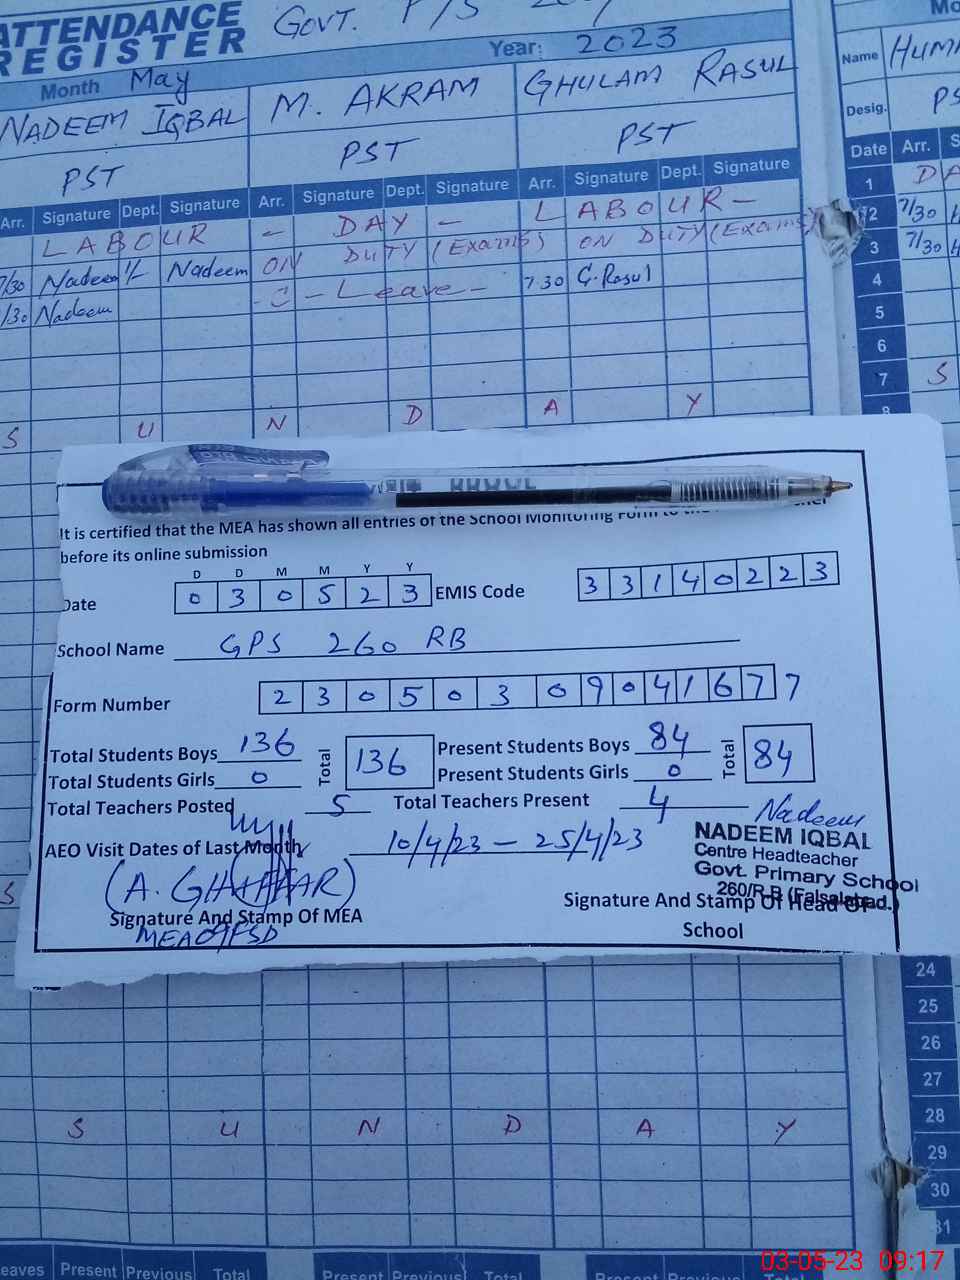 ATTENDANCE GOVT. P/S
REGISTER
Month May Year: 2023
NADEEM IQBAL M. AKRAM GHULAM RASUL
Name
PST PST PST
Desig. PS
Date Arr.
Arr. Signature Dept. Signature Arr. Signature Dept. Signature Arr. Signature Dept. Signature
LABOUR - DAY - LABOUR - 1
ON DUTY (Exams) ON DUTY (Exams) 2 7/30
7/30 Nadeem Nadeem C - Leave - 7.30 G. Rasul 3 7/30
7/30 Nadeem 4
5
6
S U N D A Y 7 S
8
It is certified that the MEA has shown all entries of the School Monitoring Form to the
before its online submission
D D M M Y Y
Date 0 3 0 5 2 3 EMIS Code 3 3 1 4 0 2 2 3
School Name GPS 260 RB
Form Number 2 3 0 5 0 3 0 9 0 4 1 6 7 7
Total Students Boys 136 Total 136 Present Students Boys 84 Total 84
Total Students Girls 0 Present Students Girls 0
Total Teachers Posted 5 Total Teachers Present 4
Nadeem
AEO Visit Dates of Last Month 10/4/23 - 25/4/23
NADEEM IQBAL
Centre Headteacher
Govt. Primary School
260/R.B (Faisalabad.)
(A. GHAFFAR)
Signature And Stamp Of MEA Signature And Stamp Of Head Of
MEA 09 FSD School
24
25
26
27
S U N D A Y 28
29
30
31
Present Previous Total Present Previous Total Present Previous
03-05-23 09:17